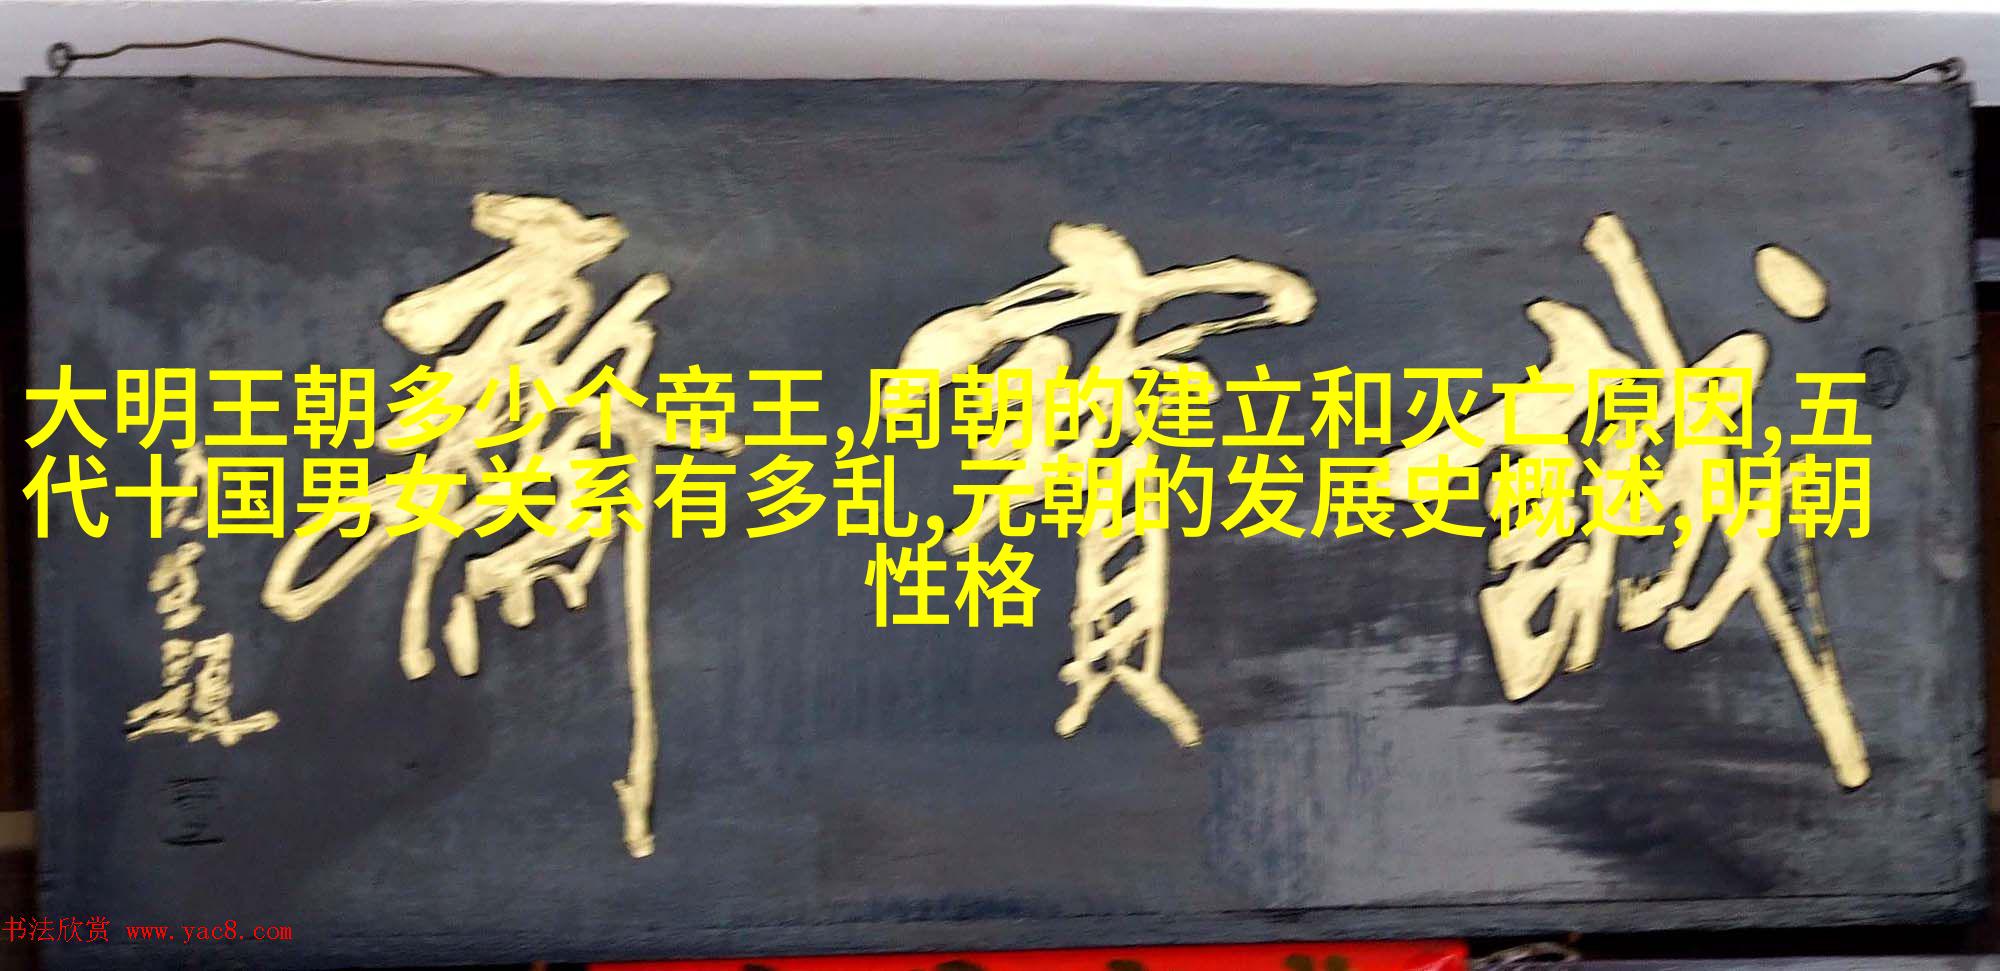 大明王朝多少个帝王,周朝的建立和灭亡原因,五
代十国男女关系有多乱,元朝的发展史概述,明朝
性格
誠寶齋
書法欣赏 www.yac8.com